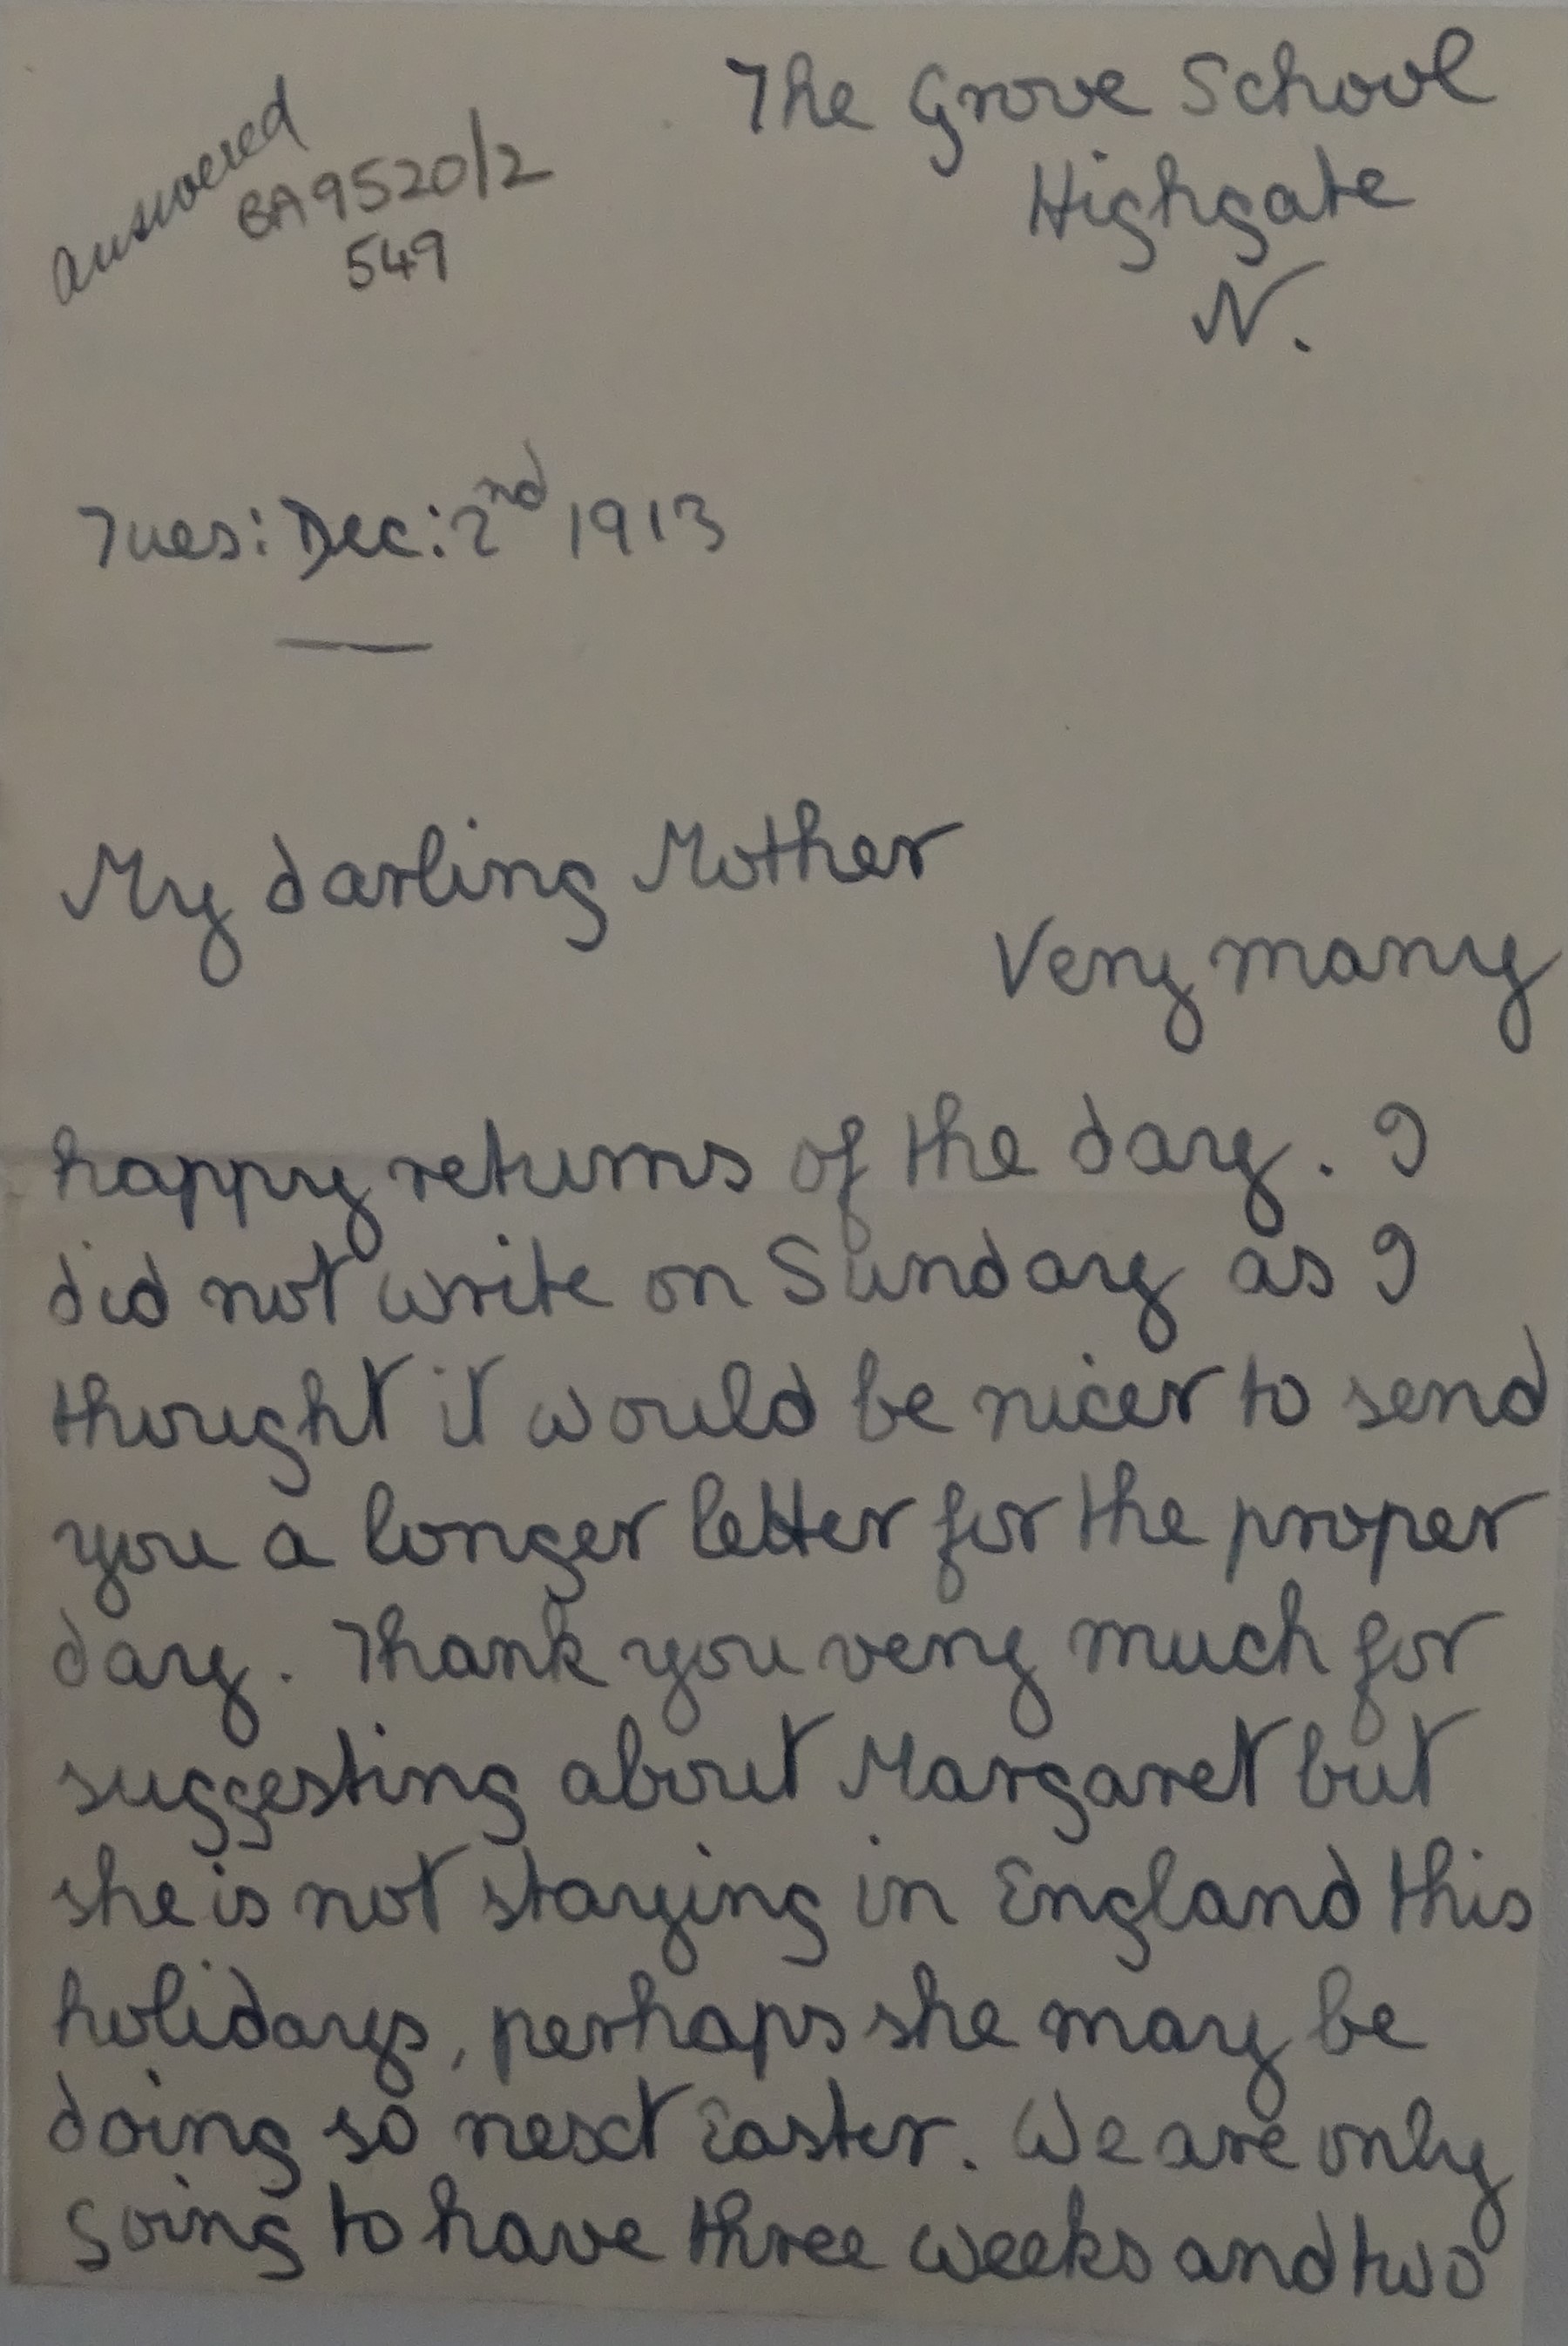 The Grove School
Highgate
N.
answered
BA9520/2
549
Tues: Dec: 2nd 1913
My darling Mother
Very many
happy returns of the day. I
did not write on Sunday as I
thought it would be nicer to send
you a longer letter for the proper
day. Thank you very much for
suggesting about Margaret but
she is not staying in England this
holidays, perhaps she may be
doing so next Easter. We are only
going to have three weeks and two